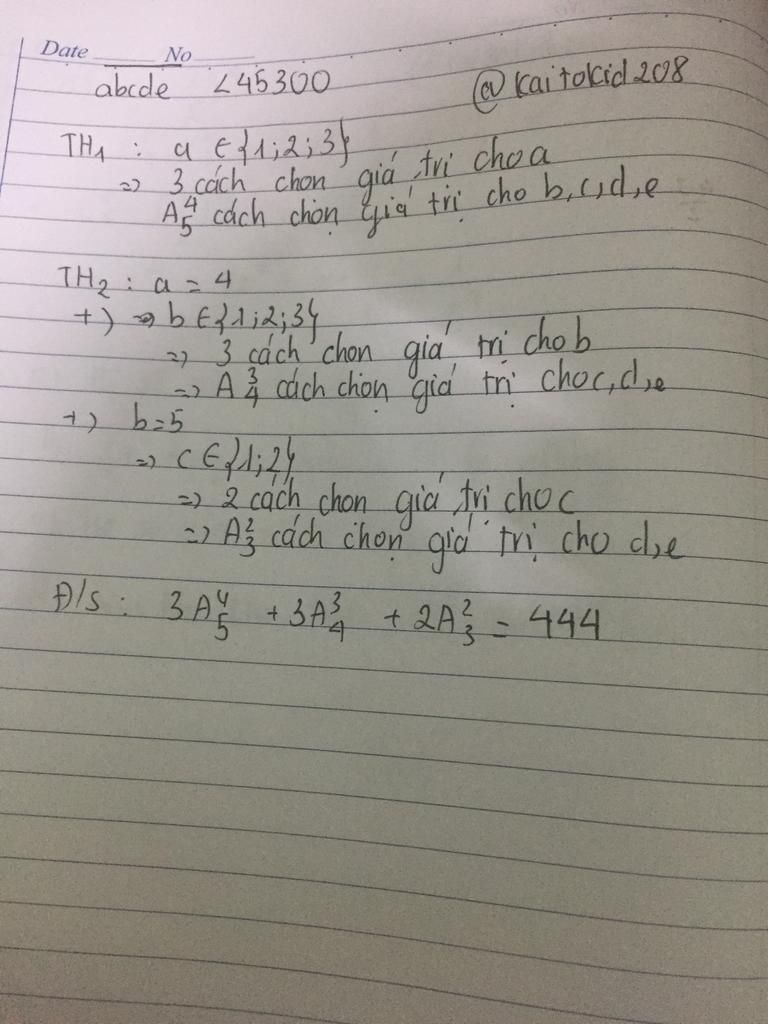 Date No
abcde < 45300 @kaitokid208
TH₁ : a ∈ {1;2;3}
=> 3 cách chon giá trị cho a
A₅⁴ cách chọn giá trị cho b,c,d,e
TH₂ : a = 4
+) => b ∈ {1;2;3}
=> 3 cách chon giá trị cho b
=> A₄³ cách chọn giá trị cho c,d,e
+) b=5
=> c ∈ {1;2}
=> 2 cách chon giá trị cho c
=> A₃² cách chọn giá trị cho d,e
Đ/s : 3A₅⁴ + 3A₄³ + 2A₃² = 444